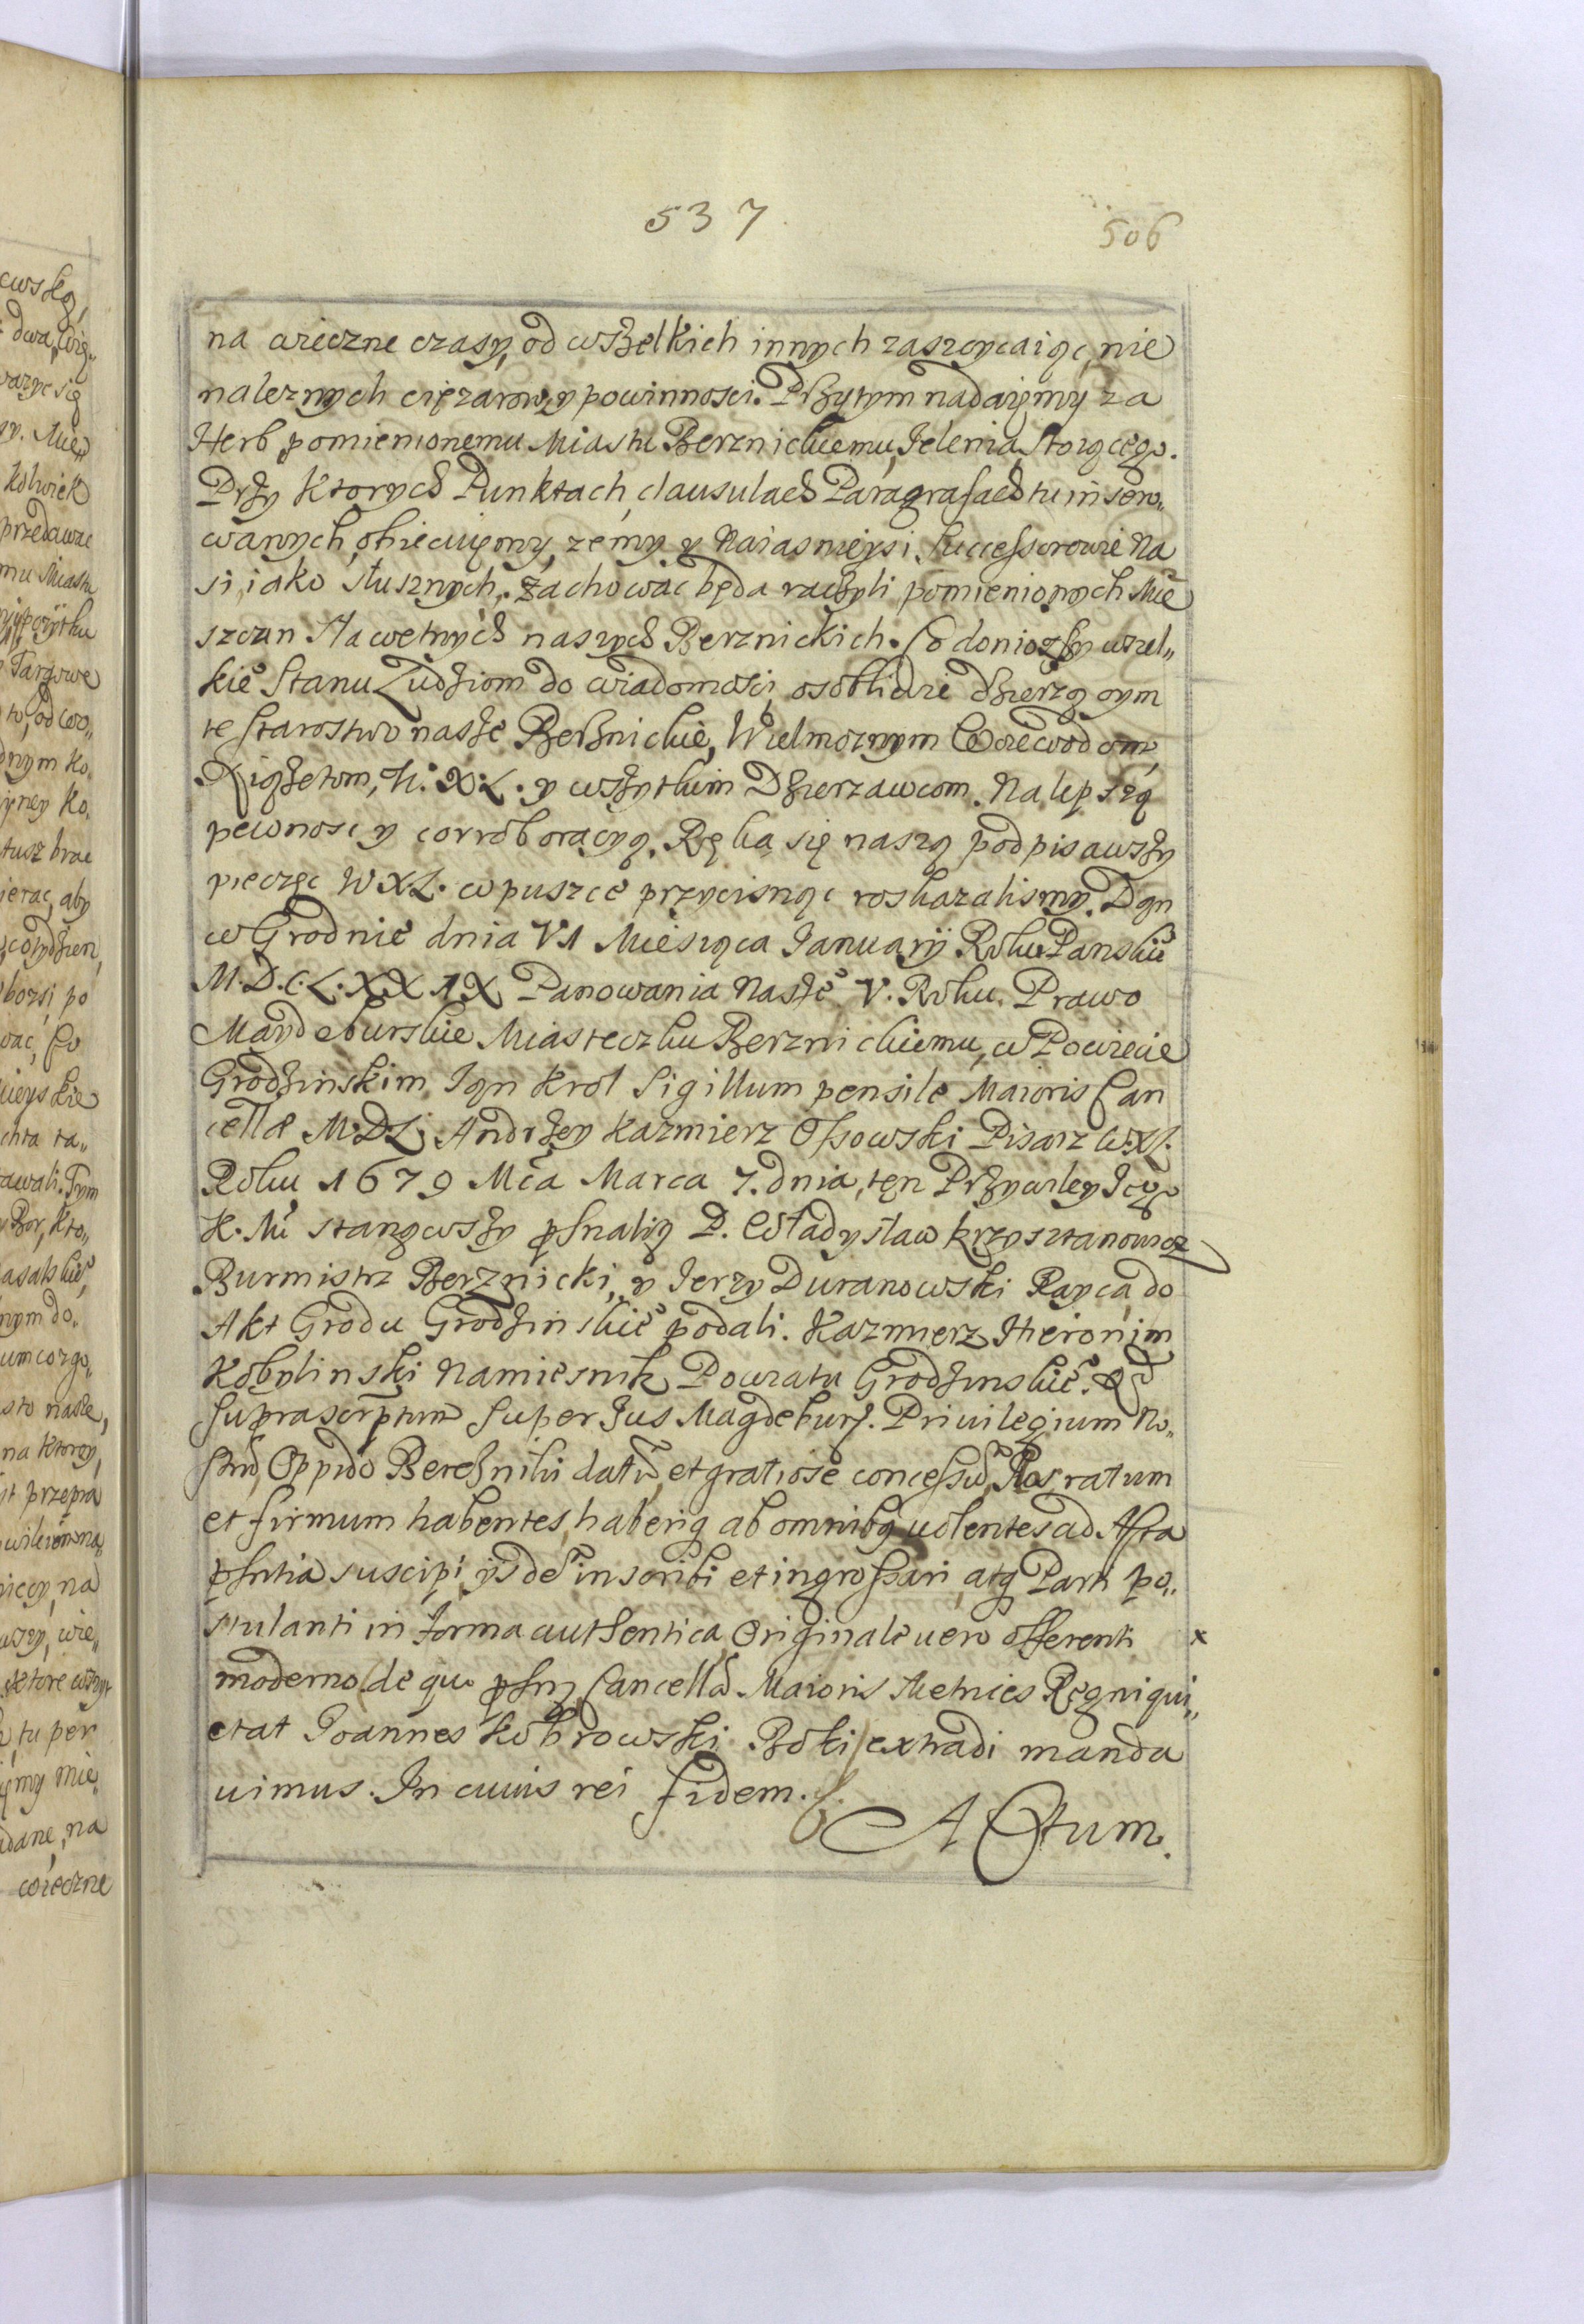 537
506
na wieczne czasy, od wszelkich innych zaszczycaiąc, nie
naleznych cięzarow, y powinnosci. Przytym nadaięmy za
Herb pomienionemu Miastu Berznickiemu, Ielenia Stoiącęgo.
Przy ktorych Punktach, clausulach Paragrafach tu insero„
wanych, obiecuięmy, ze my y Naiasnieysi Successorowie Na
si, iako słusznych, zachowac będa raczyli pomienionych Mie
szczan Sławetnych naszych Berznickich. Co doniozszy wszel„
kie Stanu Ludziom do wiadomosci, osobliwie dzierzącym
te starostwo nasze Berznickie, Wielmoznym Woiewodom,
Xiązętom, W. X. L. y wszytkim Dzierzawcom. Na lepszą
pewnosc y corroboracyą, Ręką się naszą podpisawszy
pieczęc W X. L. w puszce przycisnąc roskazalismy. Dan
w Grodnie dnia VI Miesiąca Ianuarij Roku Panskie
M. D. C. L. XX IX Panowania Nasze V. Roku. Prawo
Maydeburskie Miasteczku Berznickiemu, w Powiecie
Grodzinskim. Ian Krol Sigillum pensile Maioris Can
cellae M. D L. Andrzey Kazmierz Ossowski Pisarz W. X L.
Roku 1679 Mca Marca 7. dnia, tęn Przywiley Ieg
K. Mci stanąwszy psnaliy P. Władysław krzysztanowicz
Burmistrz Berznicki, y Ierzy Duranowski Rayca, do
Akt Grodu Grodzinskie podali. Kazmierz Hieronim
Kobylinski Namiesnik Powiatu Grodzinskie. Qd
suprascriptum super Ius Magdeburg. Privilegium No„
strũ, Oppido Berezniki datũ, et gratiose concessũ, Nos, ratum
et firmum habentes, haberiq ab omnibq uolentes ad Acta
psntia suscipi, ysdẽ inscribi et ingrossari, atq Parti po„
stulanti in forma authentica, Originale uero offerenti x
moderno (de quo psnq Cancellã Maioris Metrices Regni qui„
etat Ioannes Kobrowski Boki) extradi manda
uimus. In cuius rei fidem.
Actum.